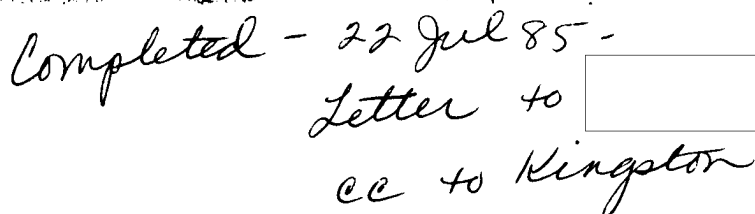 Completed - 22 Jul 85 -
Letter to
cc to Kingston